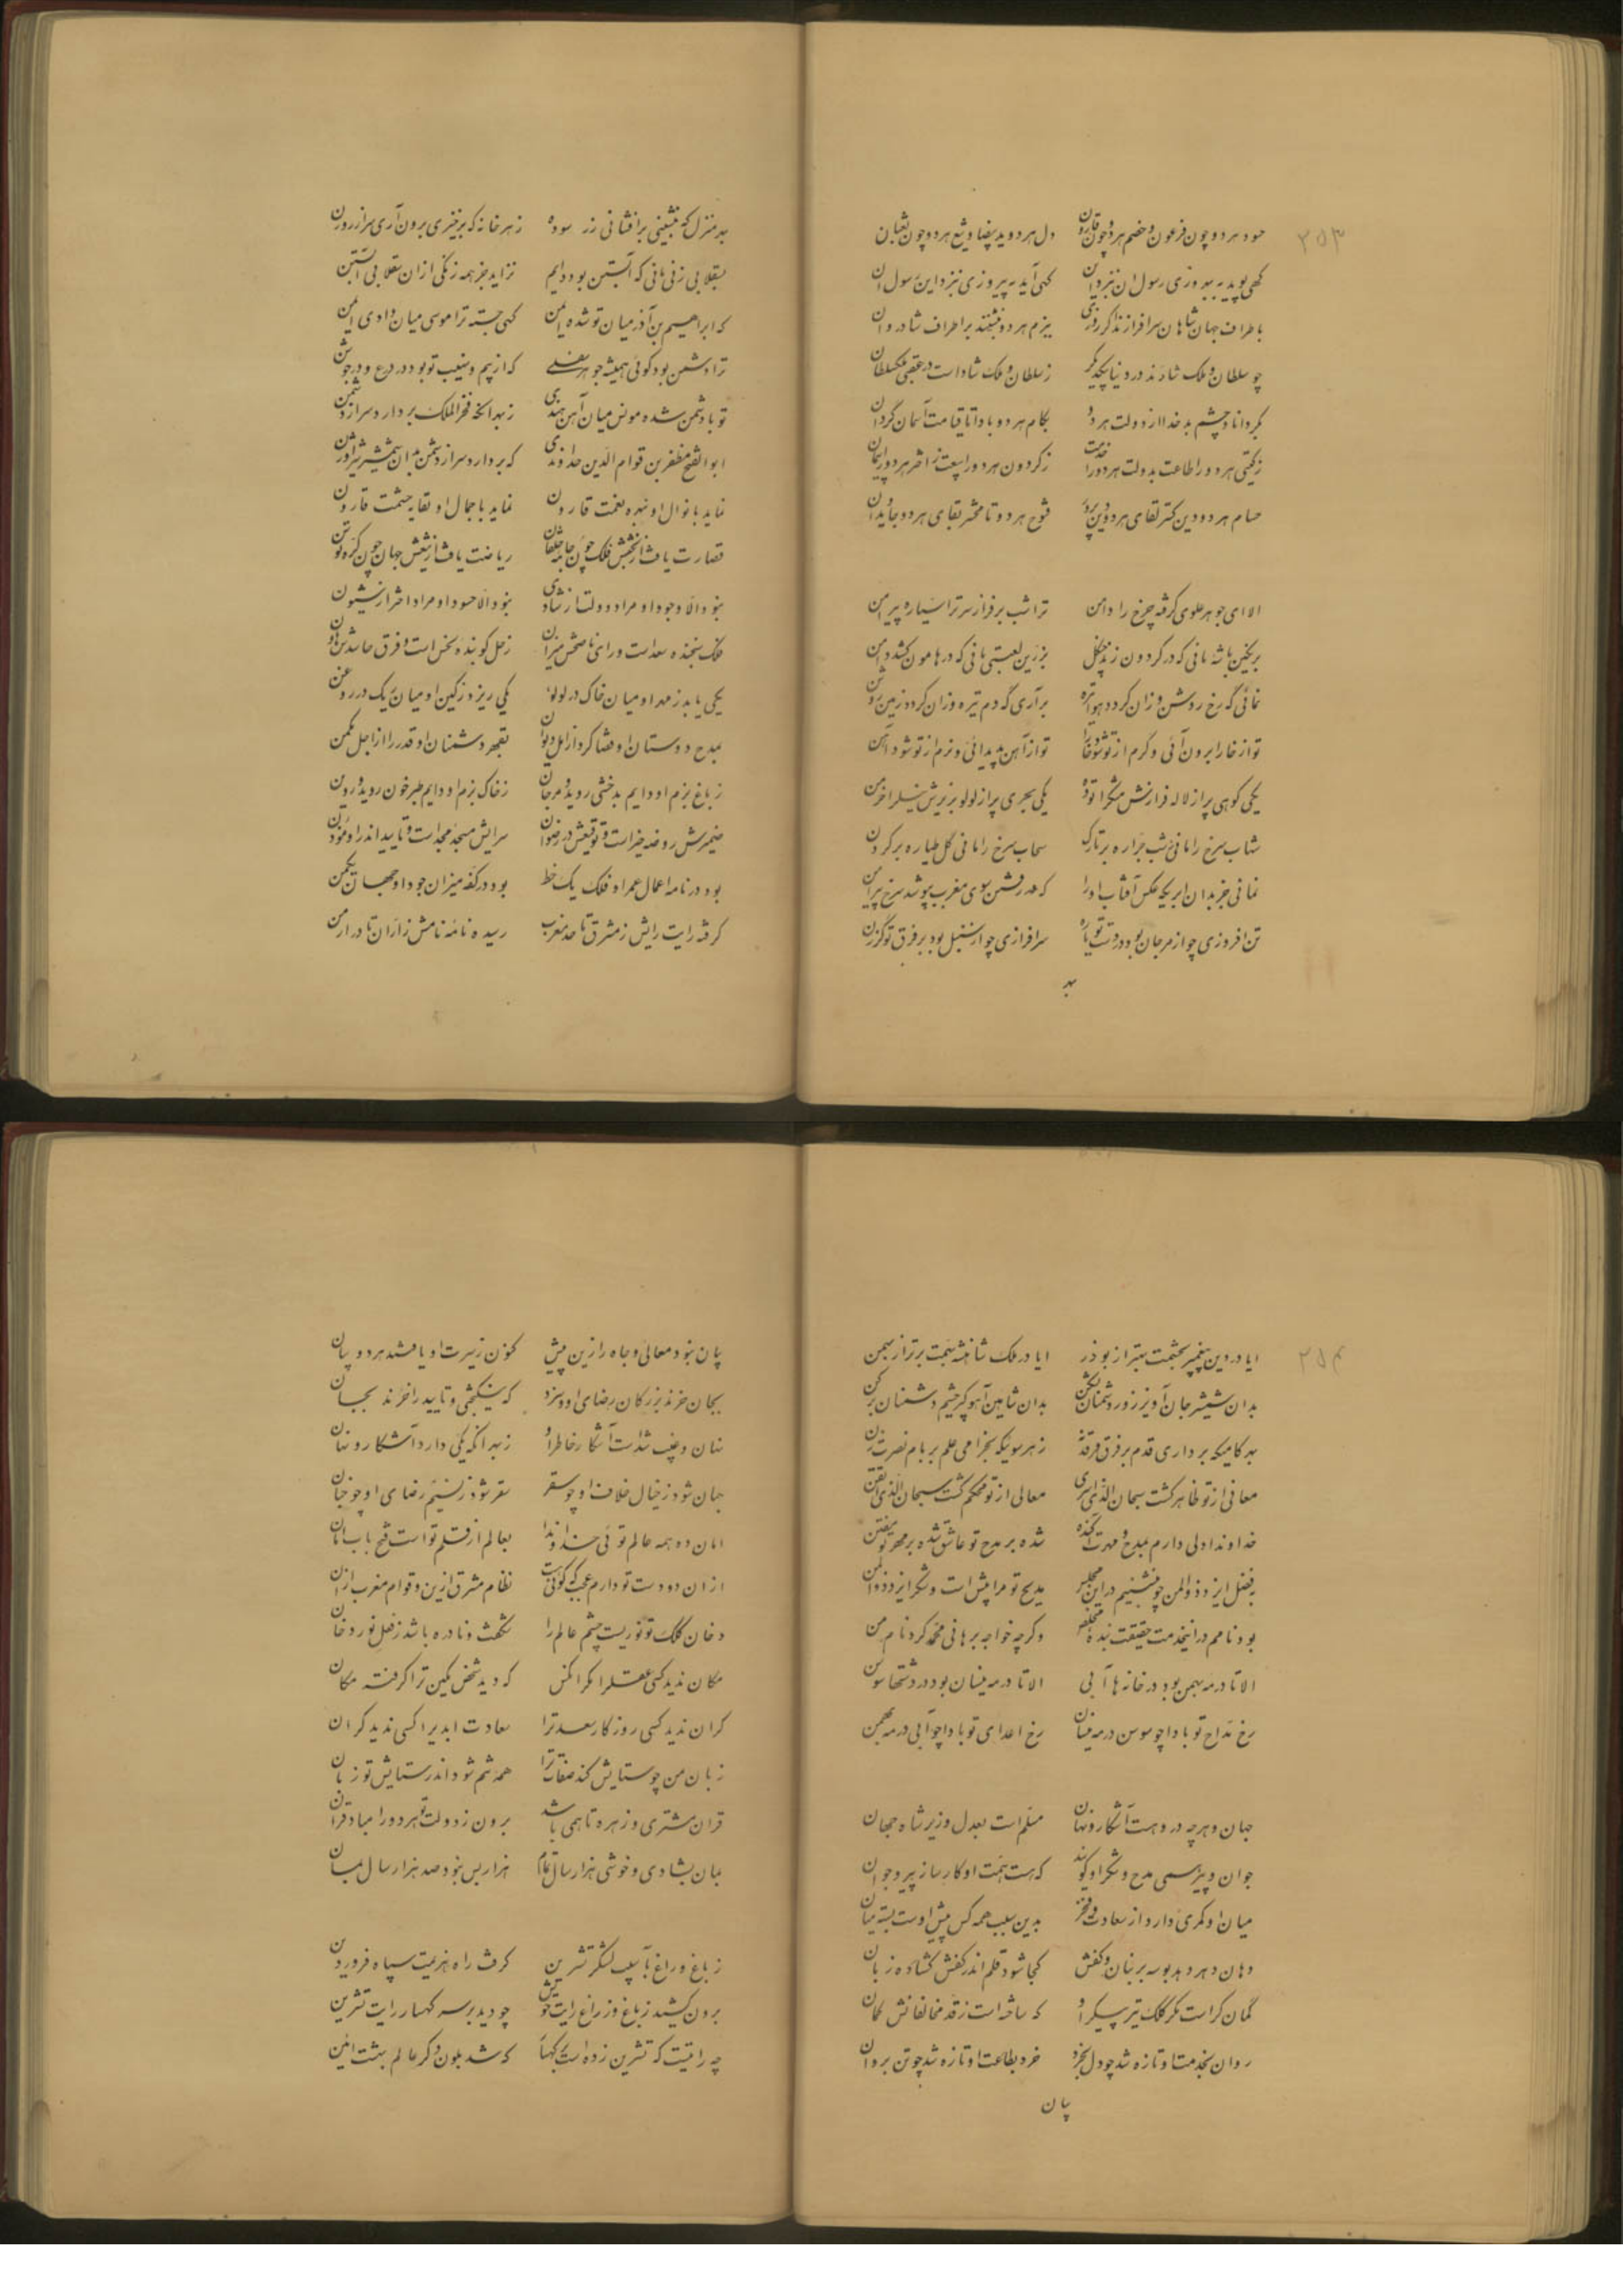 ۲۵۳
حسود هر دو چون فرعون و خصم هر دو چون قارون دل هر دو ید بیضا و تیغ هر دو چون ثعبان
کهی پوید به بهروزی رسول آن بنزد این کهی آید به پیروزی بنزد این رسول آن
باطراف جهان شاهان سرافرازند اگر روزی ببزم هر دو بنشینند بر اطراف شادروان
چو سلطان و ملک شادند در دنیا بیکدیگر ز سلطان و ملک شاد است در عقبی ملکسلطان
بگرداناد چشم بد خدا از دولت هر دو بکام هر دو بادا تا قیامت آسمان گردان
ز گیتی هر دو را طاعت بدولت هر دو را خدمت ز گردون هر دو را بیعت ز اختر هر دو را پیمان
حسام هر دو دین گستر لقای هر دو دین پرور فتوح هر دو تا محشر بقای هر دو جاویدان
الا ای جوهر علوی گرفته چرخ را دامن تراشب بر فراز سر ترا سیاره پیرامن
بزرین باشه مانی که در گردون زند چنگل بزرین لعبتی مانی که در هامون کشد دامن
نمائی گه رخ روشن وزان گردد هوا تیره برآری گه دم تیره وزان گردد زمین روشن
تو از خارا برون آئی و گرم از تو شود خارا تو از آهن پدید آئی و نرم از تو شود آهن
یکی کوهی پر از لاله فرازش مشگرا توده یکی بحری پر از لولو بزیرش نیلرا خرمن
شهاب سرخ را مانی شب جراره بر تارک سحاب سرخ را مانی گل طیاره بر گردن
نمانی جز بدان ابریکه عکس آفتاب او را که در رفتن سوی مغرب بپوشد سرخ پیراهن
تن افروزی چو از مرجان بود در دست تو یاره سرافرازی چو از سنبل بود بر فرق تو گرزن
بهر
بهر منزل که بنشینی برافشانی زر سوده ز هر خانه که برخیزی برون آری سر از روزن
بسقلابی زنی مانی که آبستن بود دایم نزاید جز همه زنگی از آن سقلابی آبستن
که ابراهیم بن آذر میان تو شده ایمن کهی جسته ترا موسی میان وادی ایمن
ترا دشمن بود گوئی همیشه جوهر سفلی که از بیم و نهیب تو بود در درع و در جوشن
تو با دشمن شده مونس میان آهن هندی ز بهر آنکه فخر الملک بردارد سر از دشمن
ابو الفتح مظفر بن قوام الدین خداوندی که بردارد سر از دشمن بدان شمشیر شیر اوژن
نماید با نوال او نبهره نعمت قارون نماید با جمال او نفایه حشمت قارن
قصارت یافت از بخشش فلک چون جامه خلقان ریاضت یافت از تیغش جهان چون کره توسن
نبود الا وجود او مراد دولت از شادی نبود الا حسود او مراد اختر از شیون
فلک سنجنده سعد است و رای ناصحش میزان زحل کوبنده نحس است و فرق حاسدش هاون
یکی یابد ز مهر او میان خاک در لولو یکی ریزد ز کین او میان ریگ در روغن
بمدح دوستان او قضا کرد از امل دیوان بقهر دشمنان او قدر را از اجل مکمن
ز باغ بزم او دایم بدخشی روید و مرجان ز خاک رزم او دایم طبرخون روید و روین
ضمیرش روضه خیر است و توقیعش در رضوان سرایش مسجد مجد است و تایید اندر او مؤذن
بود در نامه اعمال عمر او فلک یک خط بود در کفه میزان جود او جهان یکمن
گرفته رایت رایش ز مشرق تا حد مغرب رسیده نامه نامش ز اران تا در ارمن
۲۵۴
ایا در دین پیغمبر بحشمت بهتر از بوذر ایا در ملک شاهنشه بهمت برتر از بهمن
بدان شمشیر جان آویز زور دشمنان بشکن بدان شاهین آهو گیر چشم دشمنان برکن
بهر گامیکه برداری قدم بر فرق فرقد نه ز هر سوئیکه بخرامی علم بر بام نصرت زن
معانی از تو ظاهر گشت سبحان الذی اسری معالی از تو محکم گشت سبحان الذی اتقن
خداوندا دلی دارم بمدح و مهرت آکنده شده بر مدح تو عاشق شده بر مهر تو مفتن
بفضل ایزد ذوالمن چو بنشینم در این مجلس مدیح تو مرا پیش است و شکر ایزد ذوالمن
بود نامم در اینخدمت حقیقت بنده مخلص وگرچه خواجه برهانی محمد کرد نام من
الا تا در مه بهمن بود در خانه ها آبی الا تا در مه نیسان بود در دشتها سوسن
رخ مداح تو بادا چو سوسن در مه نیسان رخ اعدای تو بادا چو آبی در مه بهمن
جهان و هرچه دروهست آشکار و نهان مسلم است بعدل وزیر شاه جهان
جوان و پیر همی مدح و شکر او گویند که هست همت او کارساز پیر و جوان
میان او کمری دارد از سعادت و فخر بدین سبب همه کس پیش اوست بسته میان
دهان دهر دهد بوسه بر بنان و کفش کجا شود قلم اندر کفش گشاده زبان
گمان گر است مگر کلک تیر پیکر او که ساخته است ز قد مخالفانش کمان
روان بخدمت او تازه شد چو دل بخرد خرد بطاعت او تازه شد چو تن بروان
بیان
بیان نبود معالی و جاه را زین پیش کنون ز سیرت او یافتند هر دو بیان
بجان خرند بزرگان رضای او و سزد که نیکبختی و تایید را خرند بجان
نهان و غیب شده است آشکار خاطر او ز بهر آنکه یکی دارد آشکار و نهان
جنان شود ز خیال خلاف او چو سقر سقر شود ز نسیم رضای او چو جنان
امان ده همه عالم توئی خداوندا بعالم از قلم تو است فتح باب امان
از آن دو دست تو دارم عجب که گوئی هست نظام مشرق ازین و قوام مغرب از آن
دخان کلک تو نوریست چشم عالم را شگفت و نادره باشد ز فعل نور دخان
مکان ندید کسی عقلرا مگر آنکس که دید شخص مکین ترا گرفته مکان
کران ندید کسی روزگار سعد ترا سعادت ابدیرا کسی ندید کران
زبان من چو ستایش کند صفات ترا همه تنم شود اندر ستایش تو زبان
قران مشتری و زهره تا همی باشد برون ز دولت تو هر دو را مباد قران
بمان بشادی و خوشی هزار سال تمام هزار بس نبود صد هزار سال بمان
ز باغ و راغ بآسیب لشگر تشرین گرفت راه هزیمت سپاه فروردین
برون کشید ز باغ و ز راغ رایت خویش چو دید بر سر کهسار رایت تشرین
چه رایتیست که تشرین زده است بر کهسار که شد بلون دگر عالم بهشت آئین